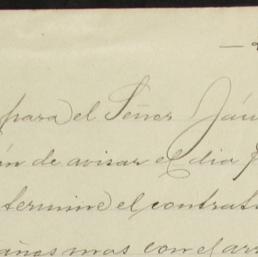 para el Señor
án de avisar el dia
termine el contrat
años mas con el arr